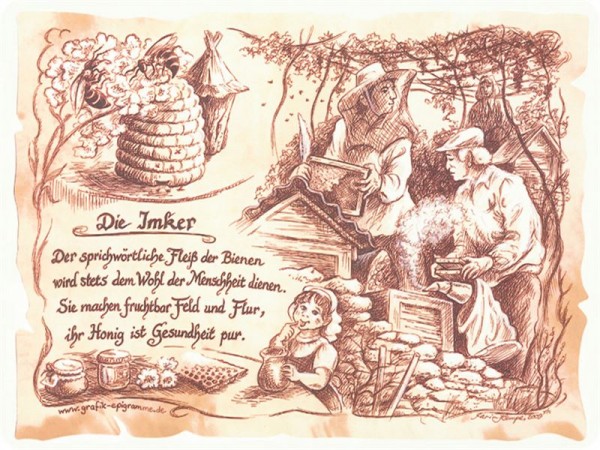 Die Imker
Der sprichwörtliche Fleiß der Bienen
wird stets dem Wohl der Menschheit dienen.
Sie machen fruchtbar Feld und Flur,
ihr Honig ist Gesundheit pur.
www.grafik-epigramme.de